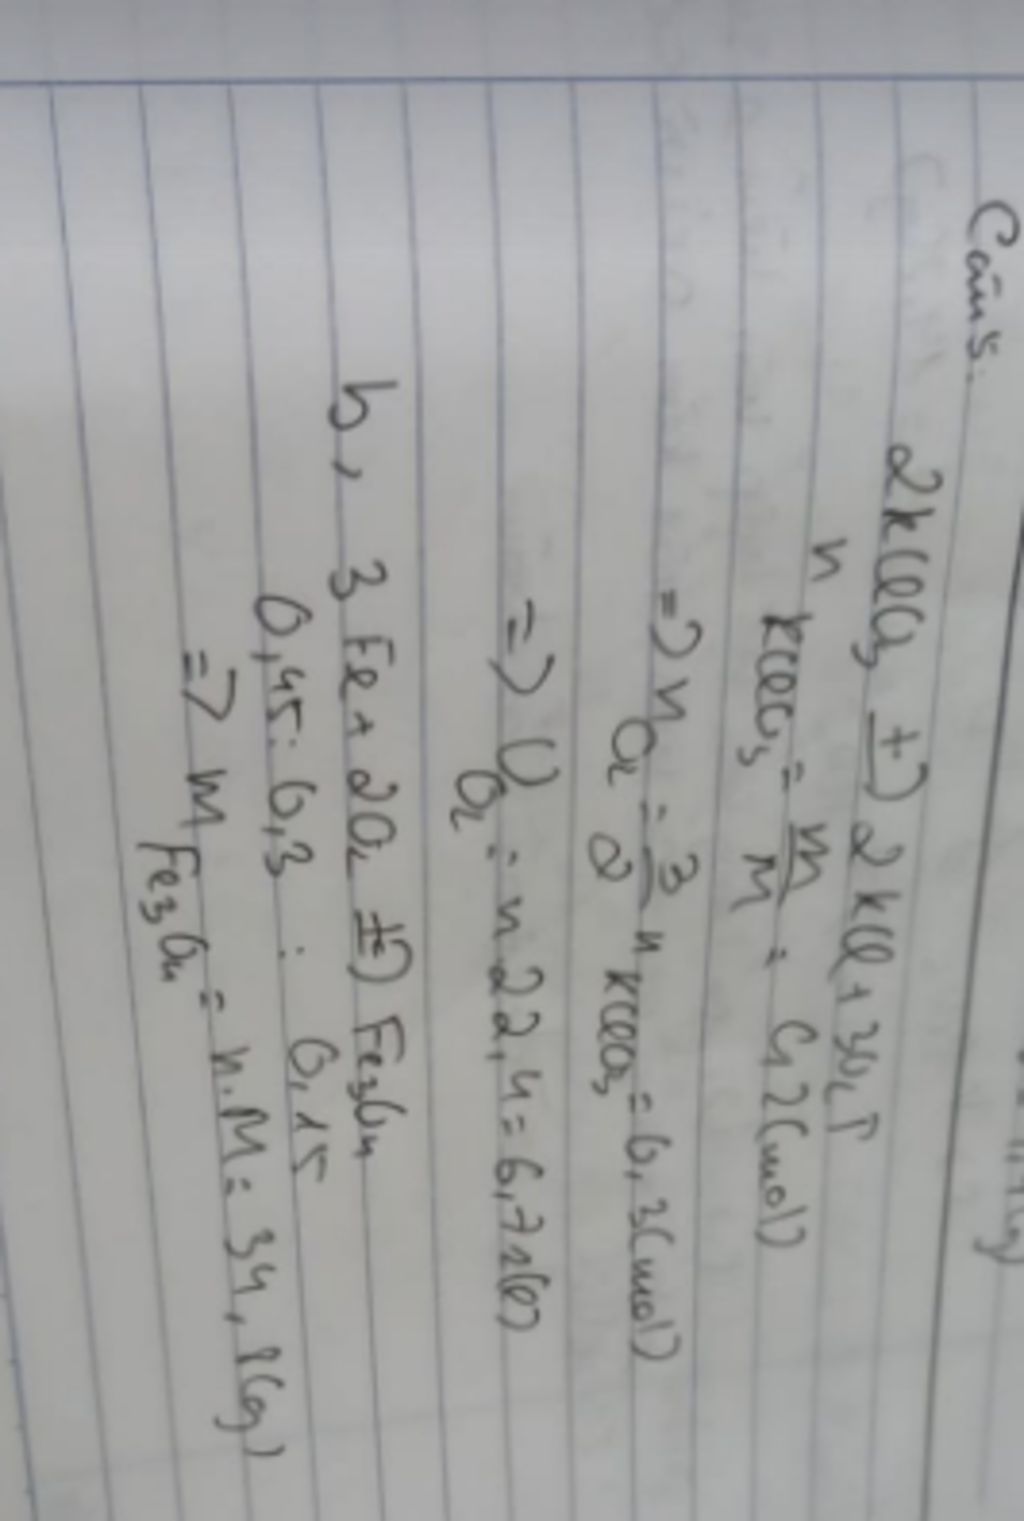 Câu 5:
2KClO3 t→ 2KCl + 3O2 ↑
n KClO3 = m/M = 0,2(mol)
=> n O2 = 3/2 n KClO3 = 0,3(mol)
=> V O2 = n.22,4 = 6,72(l)
b, 3Fe + 2O2 t→ Fe3O4
0,45 : 0,3 : 0,15
=> m Fe3O4 = n.M = 34,8(g)